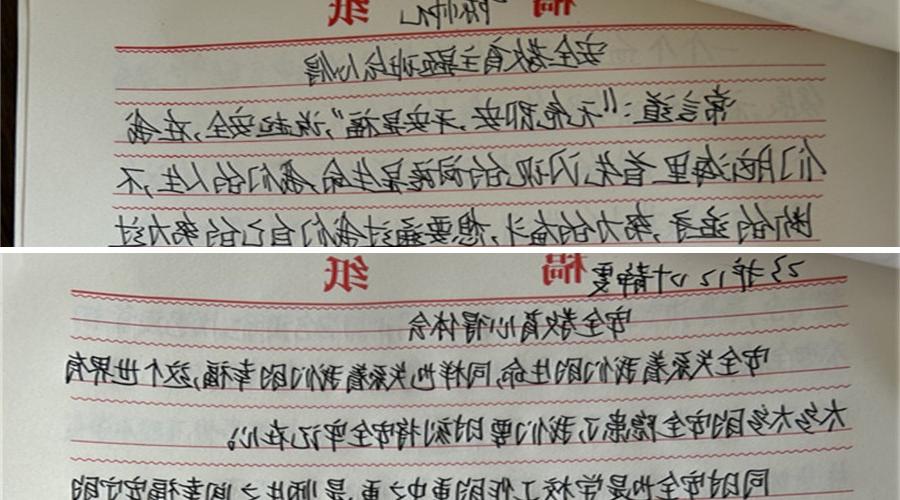 稿 纸
安全教育主题班会心得
常言道:"无危即安,平安是福",说起安全,在我
们脑海里首先闪现的词就是生命,我们的人生,不
断的追寻,努力的奋斗,想要通过我们自己的努力过
稿 纸
23护12叶静
安全教育心得体会
安全关系着我们的生命,同样也关系着我们的幸福,这个世界有
太多太多的安全隐患了,我们要时刻将安全牢记在心。
同时安全也是学校工作的重中之重,是师生之间幸福安宁的